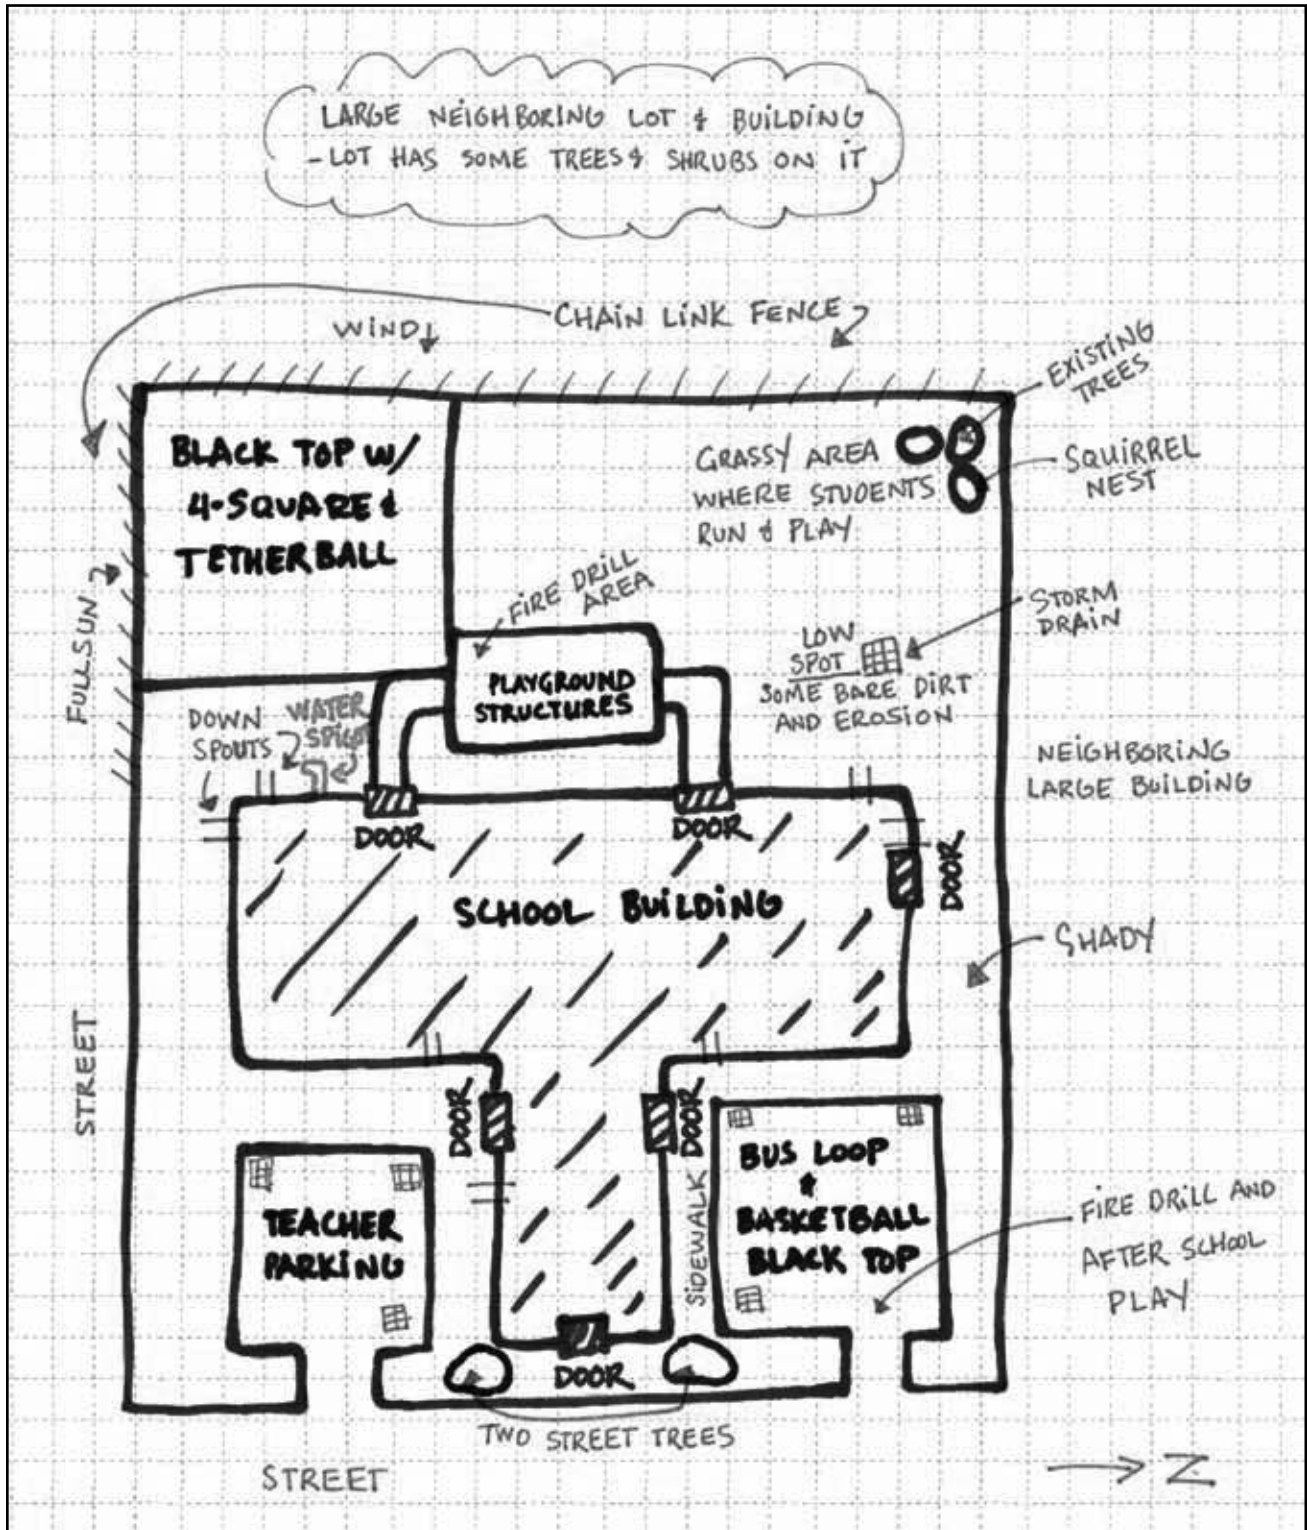 LARGE NEIGHBORING LOT & BUILDING
- LOT HAS SOME TREES & SHRUBS ON IT
CHAIN LINK FENCE
WIND
EXISTING
TREES
BLACK TOP W/
4-SQUARE &
TETHERBALL
GRASSY AREA
WHERE STUDENTS
RUN & PLAY
SQUIRREL
NEST
FIRE DRILL
AREA
STORM
DRAIN
FULL SUN
LOW
SPOT
SOME BARE DIRT
AND EROSION
PLAYGROUND
STRUCTURES
DOWN
SPOUTS
WATER
SPIGOT
NEIGHBORING
LARGE BUILDING
DOOR
DOOR
DOOR
SCHOOL BUILDING
SHADY
STREET
DOOR
DOOR
SIDEWALK
BUS LOOP
&
BASKETBALL
BLACK TOP
TEACHER
PARKING
FIRE DRILL AND
AFTER SCHOOL
PLAY
DOOR
TWO STREET TREES
STREET
Z